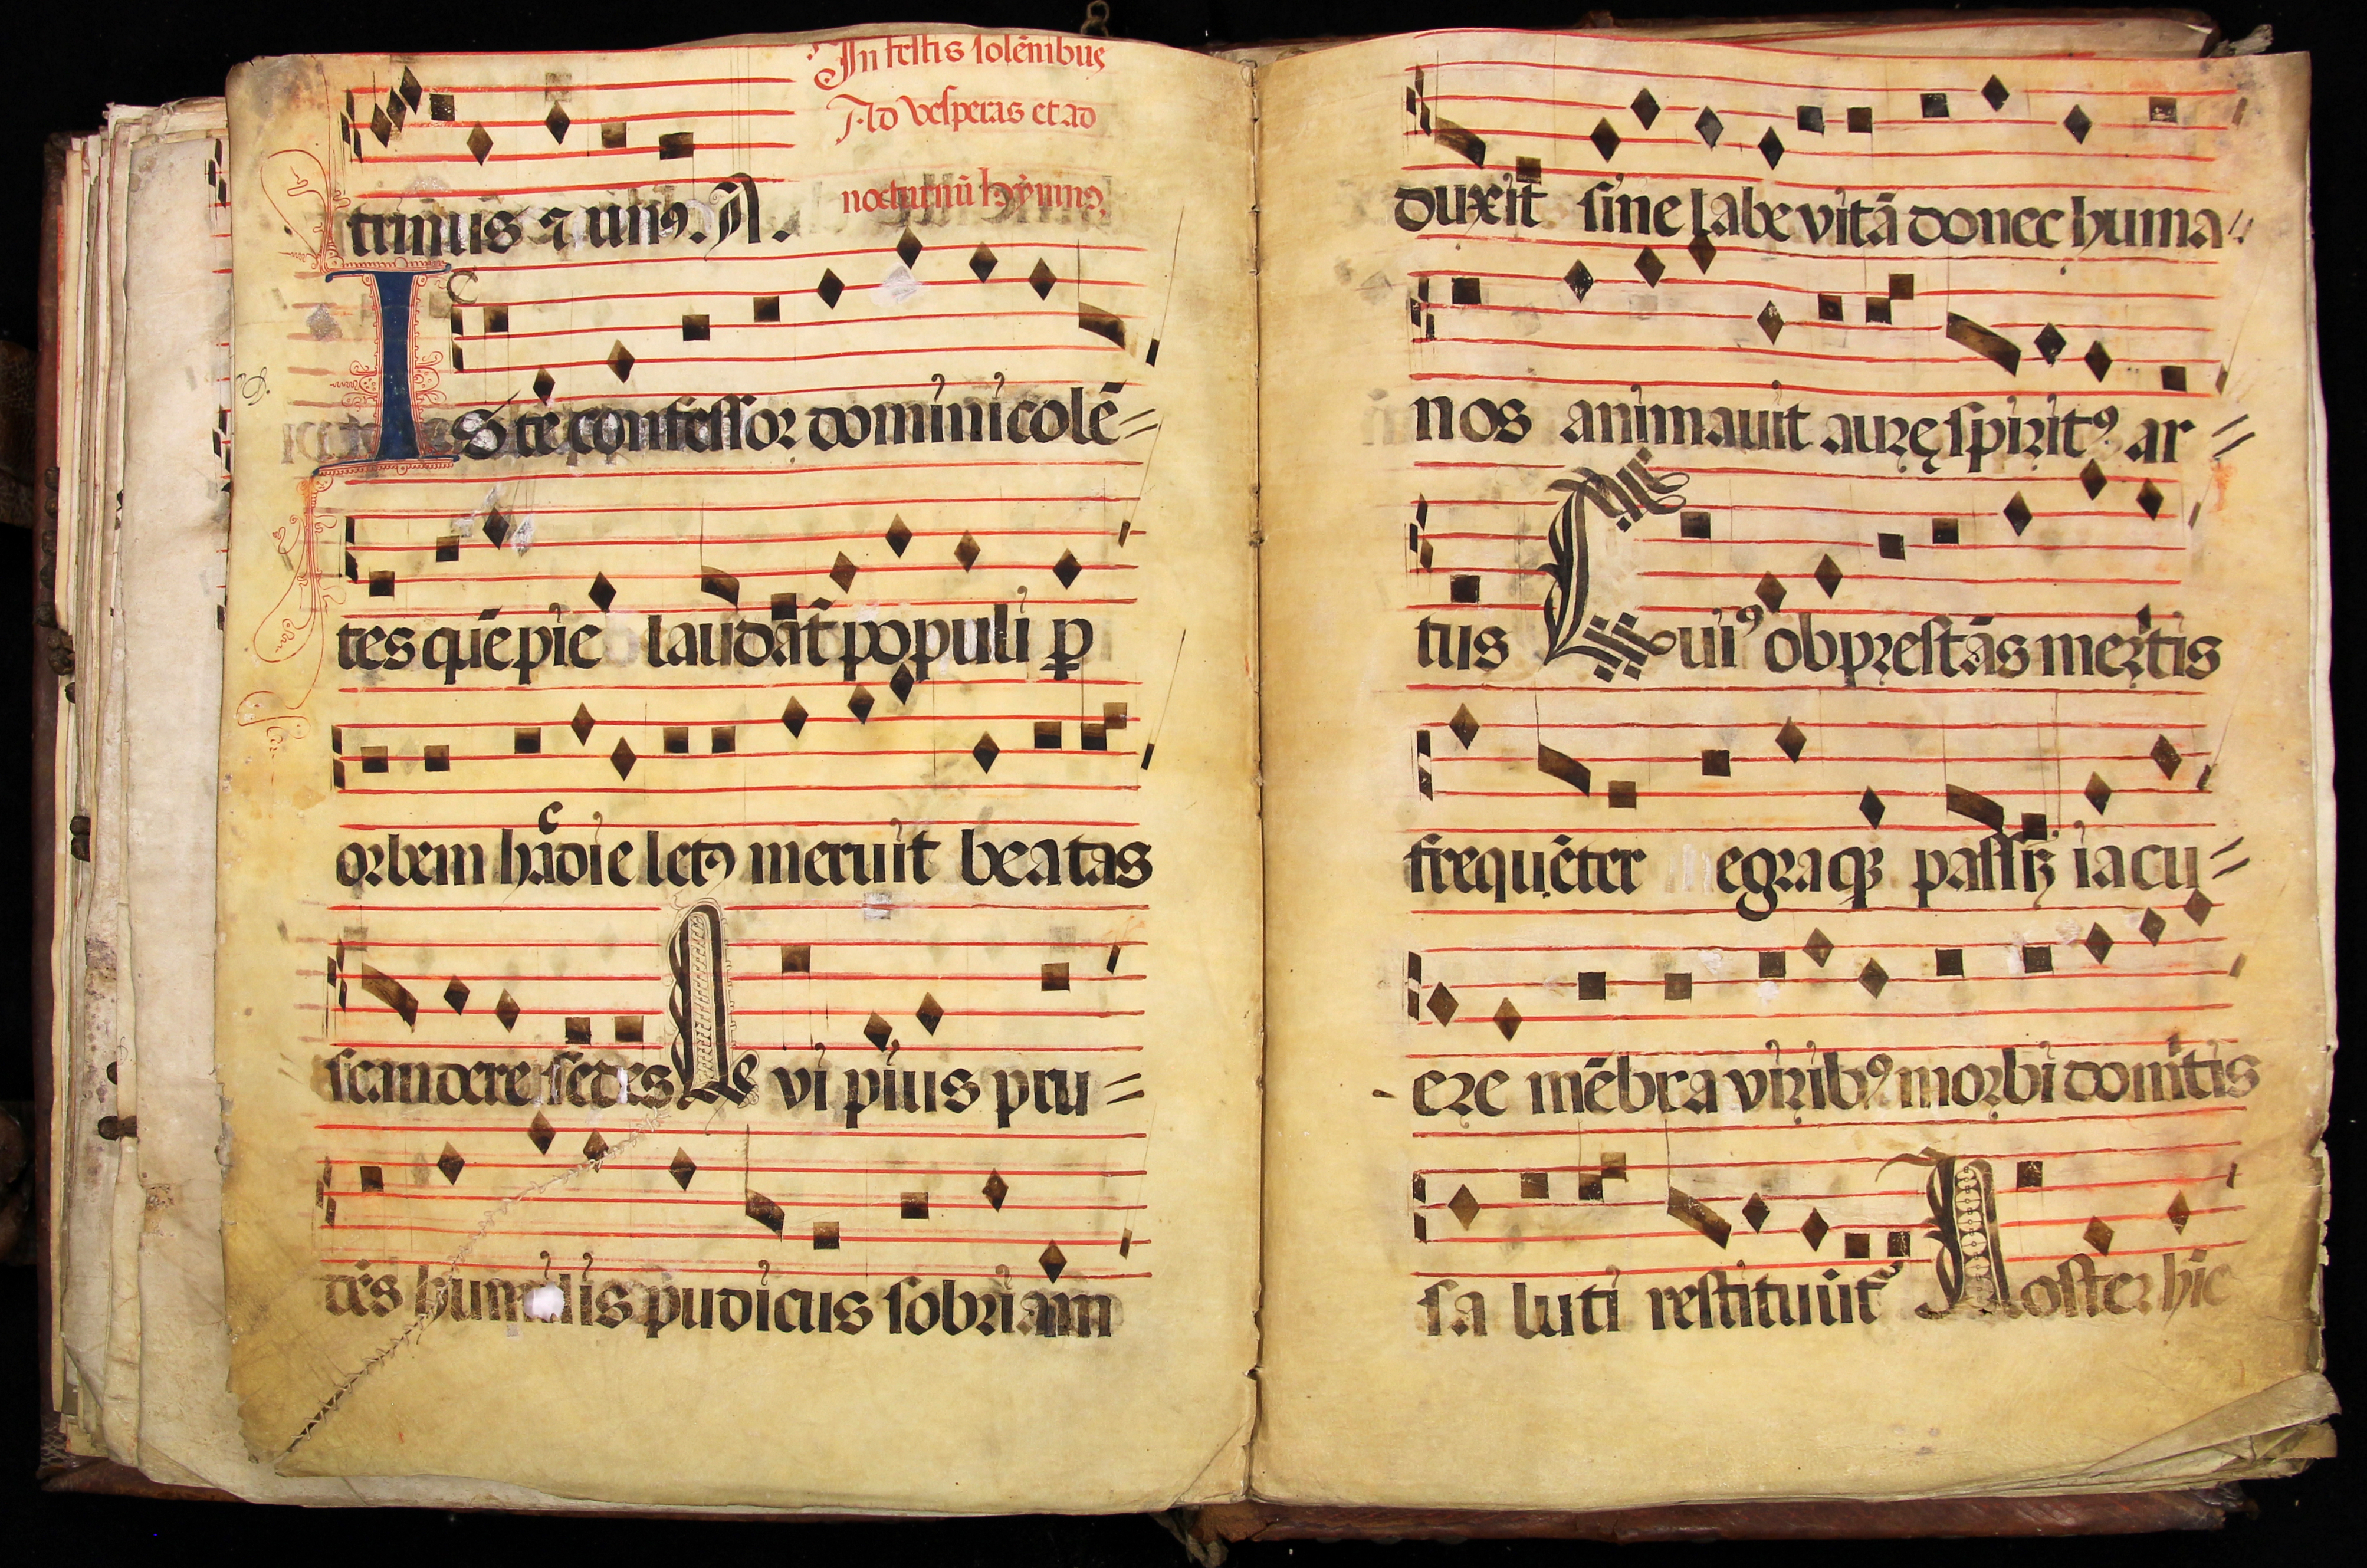 In festis solēnibus
Ad vesperas et ad
nocturnū hymnꝰ.
trinus ⁊ unꝰ. A.
Iste confessor domini colē=
tes quē pie laudāt populi ꝑ
orbem hac die letꝰ meruit beatas
scandere sedes Qvi pius pru=
dēs humilis pudicus sobriam
duxit sine labe vitā donec huma=
nos animauit aurę spiritꝰ ar=
tus Cuiꝰ ob prestās meritis
frequēter egraqꝫ passīꝫ iacu=
ere mēbra viribꝰ morbi domitis
saluti restituūt Noster hic